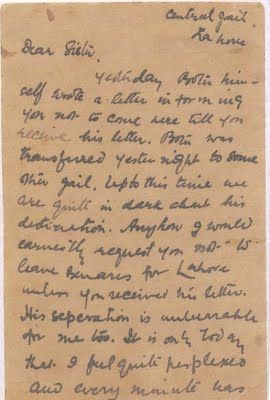 Central Jail,
Lahore
Dear Sister,
Yesterday Botu him-
self wrote a letter informing
you not to come here till you
receive his letter. Botu was
transferred yesternight to some
other jail. Upto this time we
are quite in dark about his
destination. Anyhow I would
earnestly request you not to
leave Benares for Lahore
unless you received his letter.
His seperation is unbearable
for me too. It is only today
that I feel quite perplexed
and every minute has